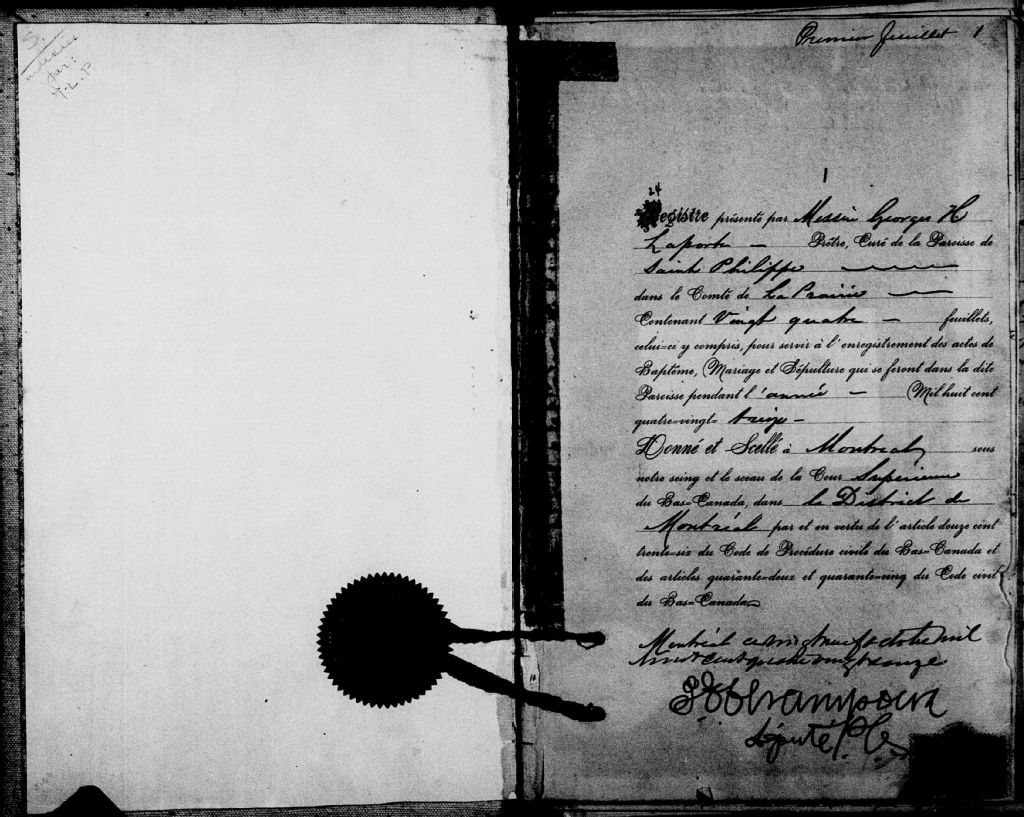 par:
Premier feuillet 1
1
24
Registre présenté par Messire Georges H
Laporte — Prêtre, Curé de la Paroisse de
Saint Philippe
dans le Comté de La Prairie —
Contenant Vingt quatre — feuillets,
celui-ci y compris, pour servir à l'enregistrement des actes de
Baptême, Mariage et Sépulture qui se feront dans la dite
Paroisse pendant l'année — Mil huit cent
quatre-vingt- treize —
Donné et Scellé à Montréal sous
notre seing et le sceau de la Cour Supérieure
du Bas-Canada, dans le District de
Montréal par et en vertu de l'article douze cent
trente-six du Code de Procédure civile du Bas-Canada et
des articles quarante-deux et quarante-cinq du Code civil
du Bas-Canada
Montréal ce vingt neuf octobre mil
huit cent quatre vingt
Député P. C.